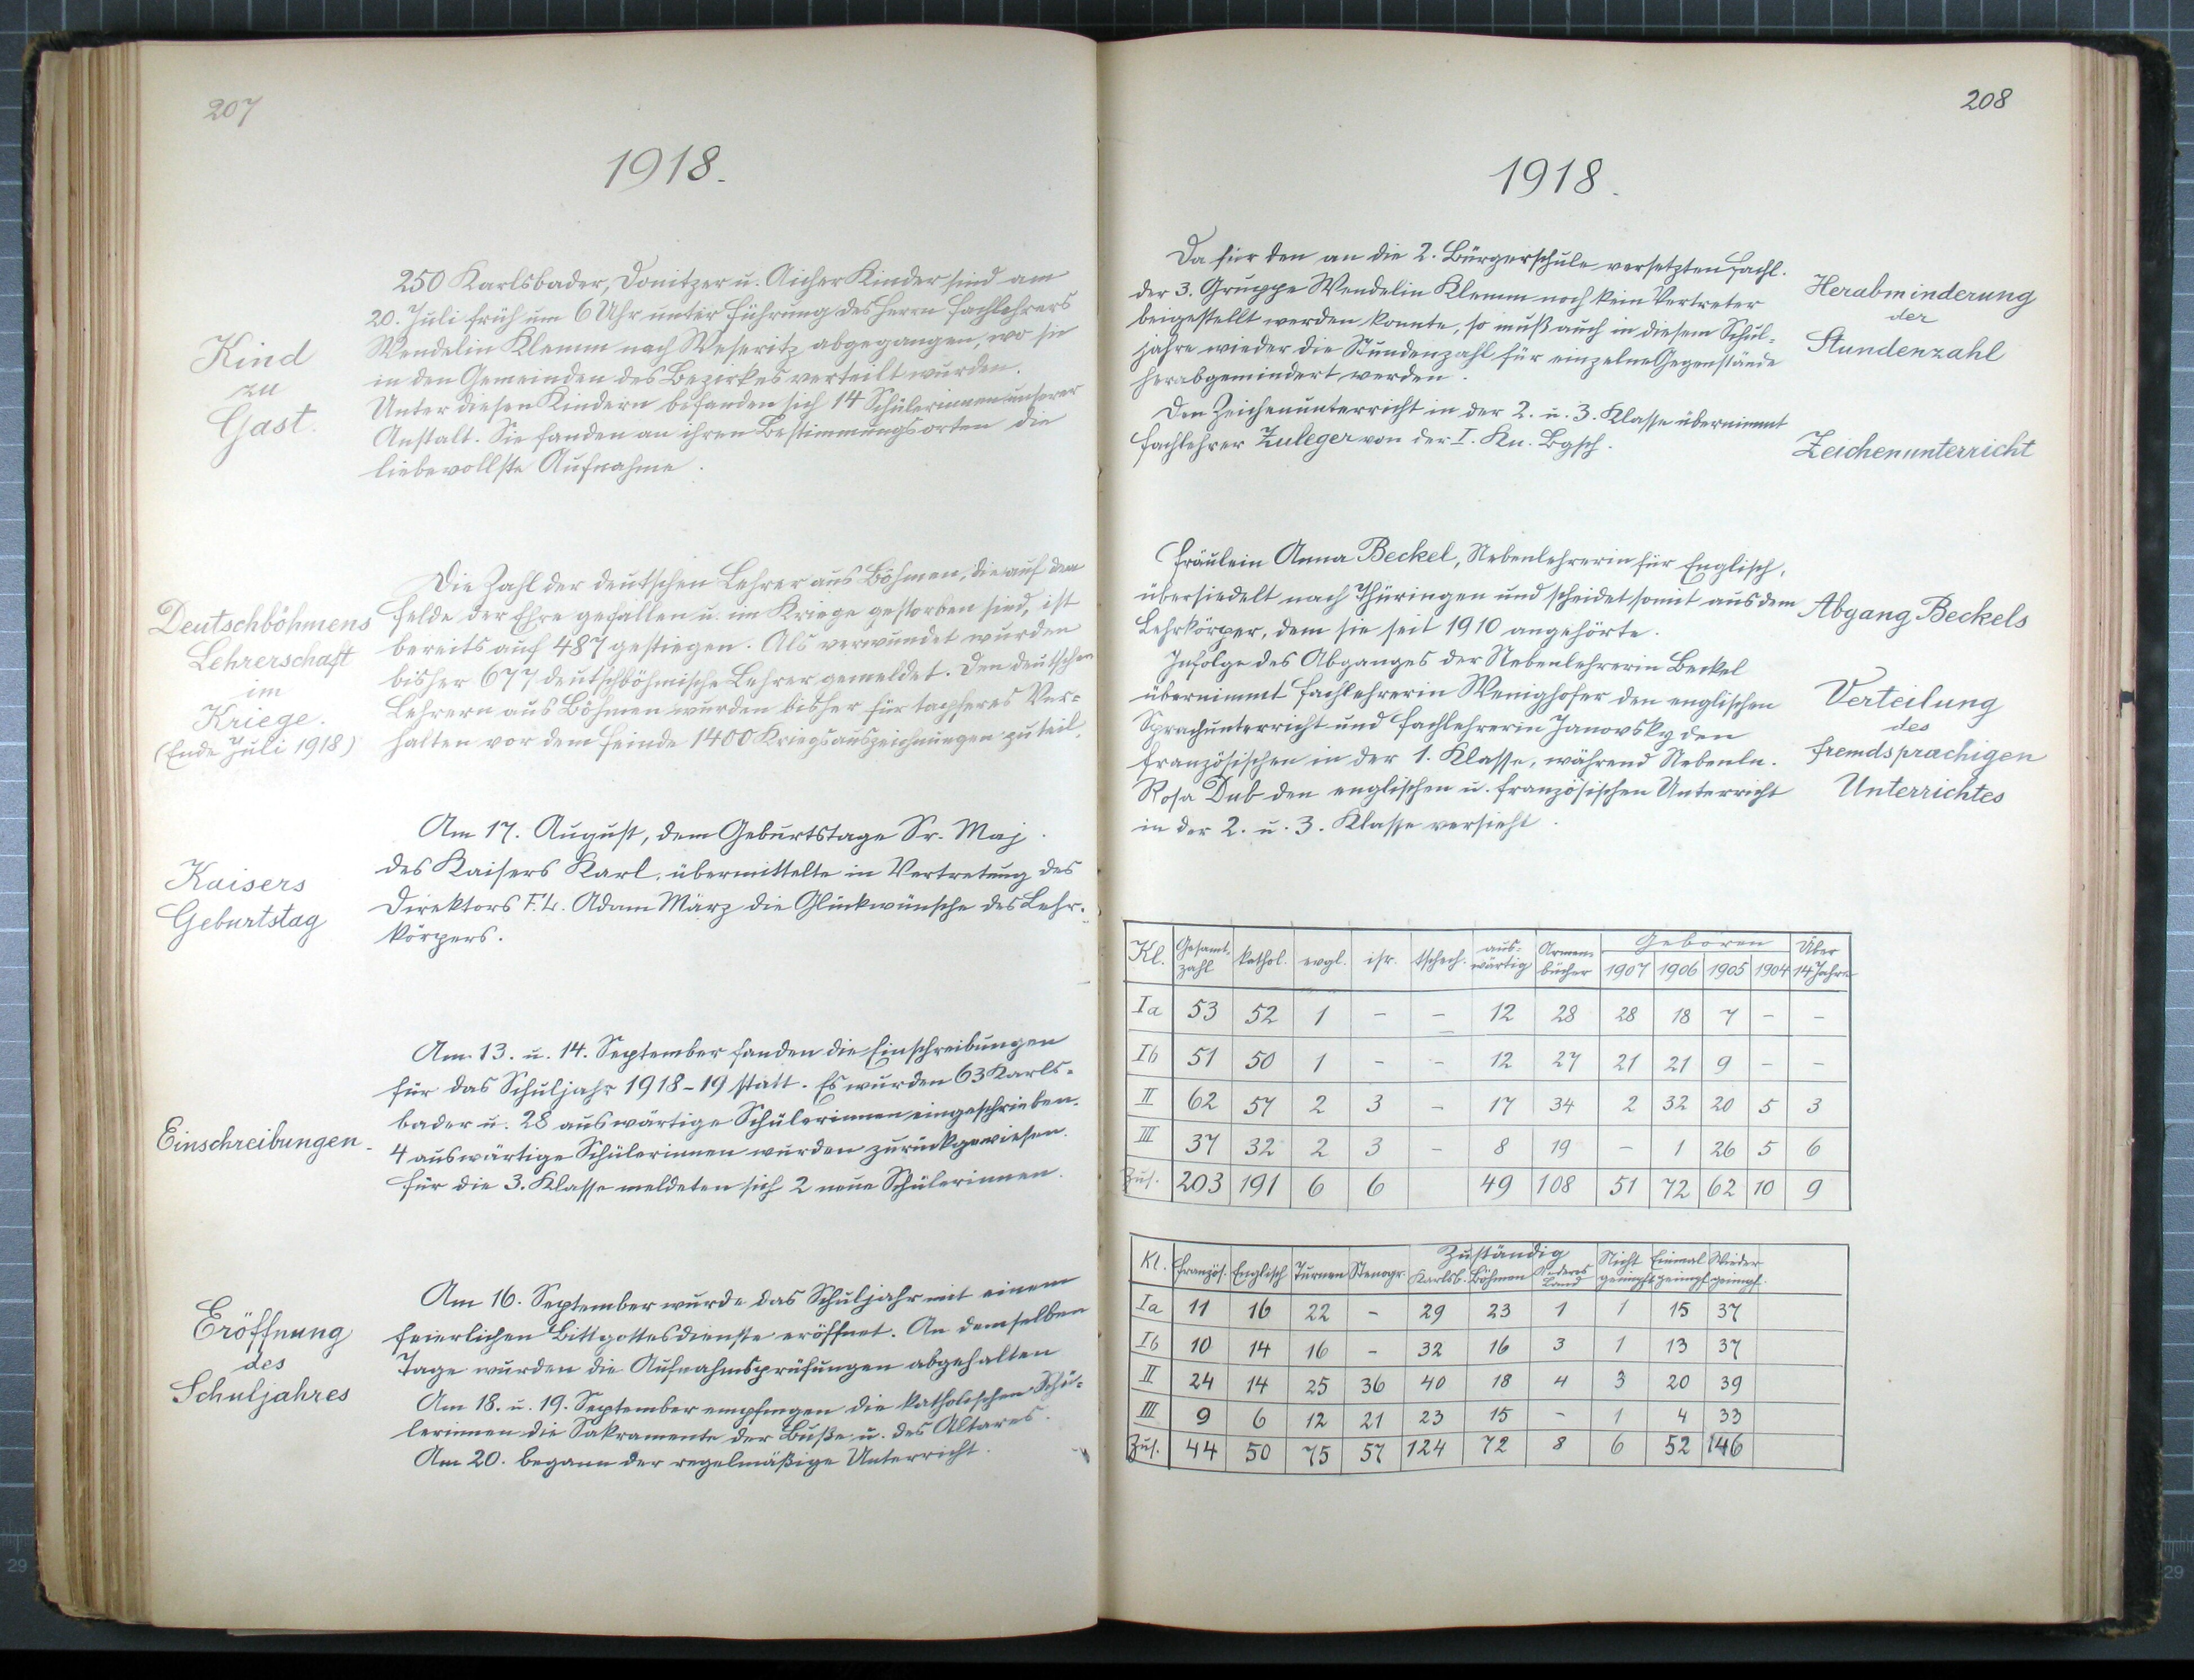 207
1918.
Kind
zu
Gast.
250 Karlsbader, Donitzer u. Aicher Kinder sind am
20. Juli früh um 6 Uhr unter Führung des Herrn Fachlehrers
Wendelin Klemm nach Weseritz abgegangen, wo sie
in den Gemeinden des Bezirkes verteilt wurden.
Unter diesen Kindern befanden sich 14 Schülerinnen unserer
Anstalt. Sie fanden an ihren Bestimmungsorten die
liebevollste Aufnahme.
Deutschböhmens
Lehrerschaft
im
Kriege.
(Ende Juli 1918)
Die Zahl der deutschen Lehrer aus Böhmen, die auf dem
Felde der Ehre gefallen u. im Kriege gestorben sind, ist
bereits auf 487 gestiegen. Als verwundet wurden
bisher 677 deutschböhmische Lehrer gemeldet. Den deutschen
Lehrern aus Böhmen wurden bisher für tapferes Ver-
halten vor dem Feinde 1400 Kriegsauszeichnungen zuteil.
Kaisers
Geburtstag
Am 17. August, dem Geburtstage Sr. Maj.
des Kaisers Karl, übermittelte in Vertretung des
Direktors F.L. Adam März die Glückwünsche des Lehr-
körpers.
Einschreibungen.
Am 13. u. 14. September fanden die Einschreibungen
für das Schuljahr 1918-19 statt. Es wurden 63 Karls-
bader u. 28 auswärtige Schülerinnen eingeschrieben.
4 auswärtige Schülerinnen wurden zurückgewiesen.
Für die 3. Klasse meldeten sich 2 neue Schülerinnen.
Eröffnung
des
Schuljahres
Am 16. September wurde das Schuljahr mit einem
feierlichen Bittgottesdienste eröffnet. An demselben
Tage wurden die Aufnahmsprüfungen abgehalten
Am 18. u. 19. September empfingen die katholischen Schü-
lerinnen die Sakramente der Buße u. des Altares.
Am 20. begann der regelmäßige Unterricht.
208
1918.
Da für den an die 2. Bürgerschule versetzten Fachl.
der 3. Gruppe Wendelin Klemm noch kein Vertreter
beigestellt werden konnte, so muß auch in diesem Schul-
jahre wieder die Stundenzahl für einzelne Gegenstände
herabgemindert werden.
Herabminderung
der
Stundenzahl
Den Zeichenunterricht in der 2. u. 3. Klasse übernimmt
Fachlehrer Zuleger von der I. Kn. Bgsch.
Zeichenunterricht
Fräulein Anna Beckel, Nebenlehrerin für Englisch,
übersiedelt nach Thüringen und scheidet somit aus dem
Lehrkörper, dem sie seit 1910 angehörte.
Abgang Beckels
Infolge des Abganges der Nebenlehrerin Beckel
übernimmt Fachlehrerin Wenighofer den englischen
Sprachunterricht und Fachlehrerin Janovsky den
französischen in der 1. Klasse, während Nebenln.
Rosa Dub den englischen u. französischen Unterricht
in der 2. u. 3. Klasse versieht.
Verteilung
des
fremdsprachigen
Unterrichtes
Kl. Gesamt-zahl kathol. evgl. isr. tschech. aus-wärtig Armen-bücher Geboren 1907 1906 1905 1904 Über 14 Jahre
Ia 53 52 1 - - 12 28 28 18 7 - -
Ib 51 50 1 - - 12 27 21 21 9 - -
II 62 57 2 3 - 17 34 2 32 20 5 3
III 37 32 2 3 - 8 19 - 1 26 5 6
Zus. 203 191 6 6 49 108 51 72 62 10 9
Kl. Französ. Englisch Turnen Stenogr. Zuständig Karlsb. Böhmen Anderes Land Nicht geimpft Einmal geimpf. Wieder geimpf.
Ia 11 16 22 - 29 23 1 1 15 37
Ib 10 14 16 - 32 16 3 1 13 37
II 24 14 25 36 40 18 4 3 20 39
III 9 6 12 21 23 15 - 1 4 33
Zus. 44 50 75 57 124 72 8 6 52 146
29
29